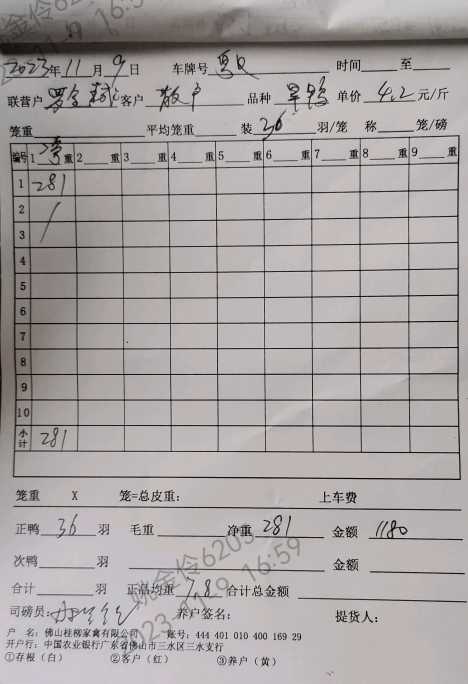 2023年11月9日 车牌号 时间 至
联营户 罗金 客户 散户 品种 旱鸭 单价 4.2 元/斤
笼重 平均笼重 装 36 羽/笼 称 笼/磅
编号 1 净重 2 重 3 重 4 重 5 重 6 重 7 重 8 重 9 重
1 281
2 /
3
4
5
6
7
8
9
10
小计 281
笼重 X 笼=总皮重: 上车费
正鸭 36 羽 毛重 净重 281 金额 1180
次鸭 羽 金额
合计 羽 正品均重 7.8 合计总金额
司磅员: 养户签名: 提货人:
户 名: 佛山桂柳家禽有限公司 账号: 444 401 010 400 169 29
开户行: 中国农业银行广东省佛山市三水区三水支行
①存根(白) ②客户(红) ③养户(黄)
姚金伶6203
2023-11-9 16:59